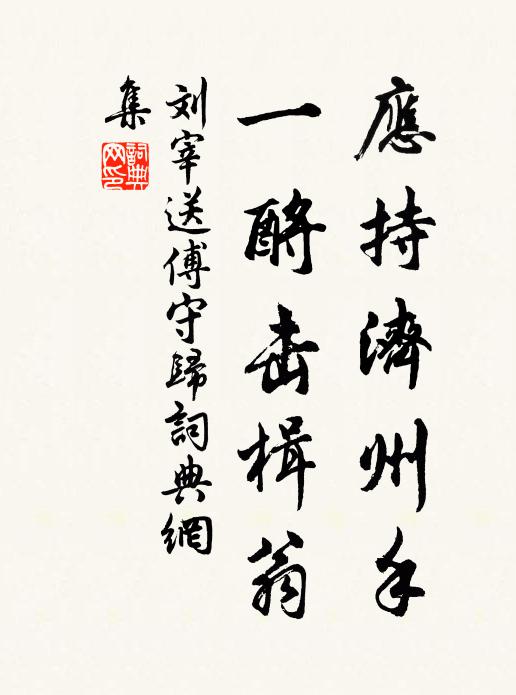 應持濟州手
一酹击楫翁
刘宰送傅守歸詞典網
集
詞典网印